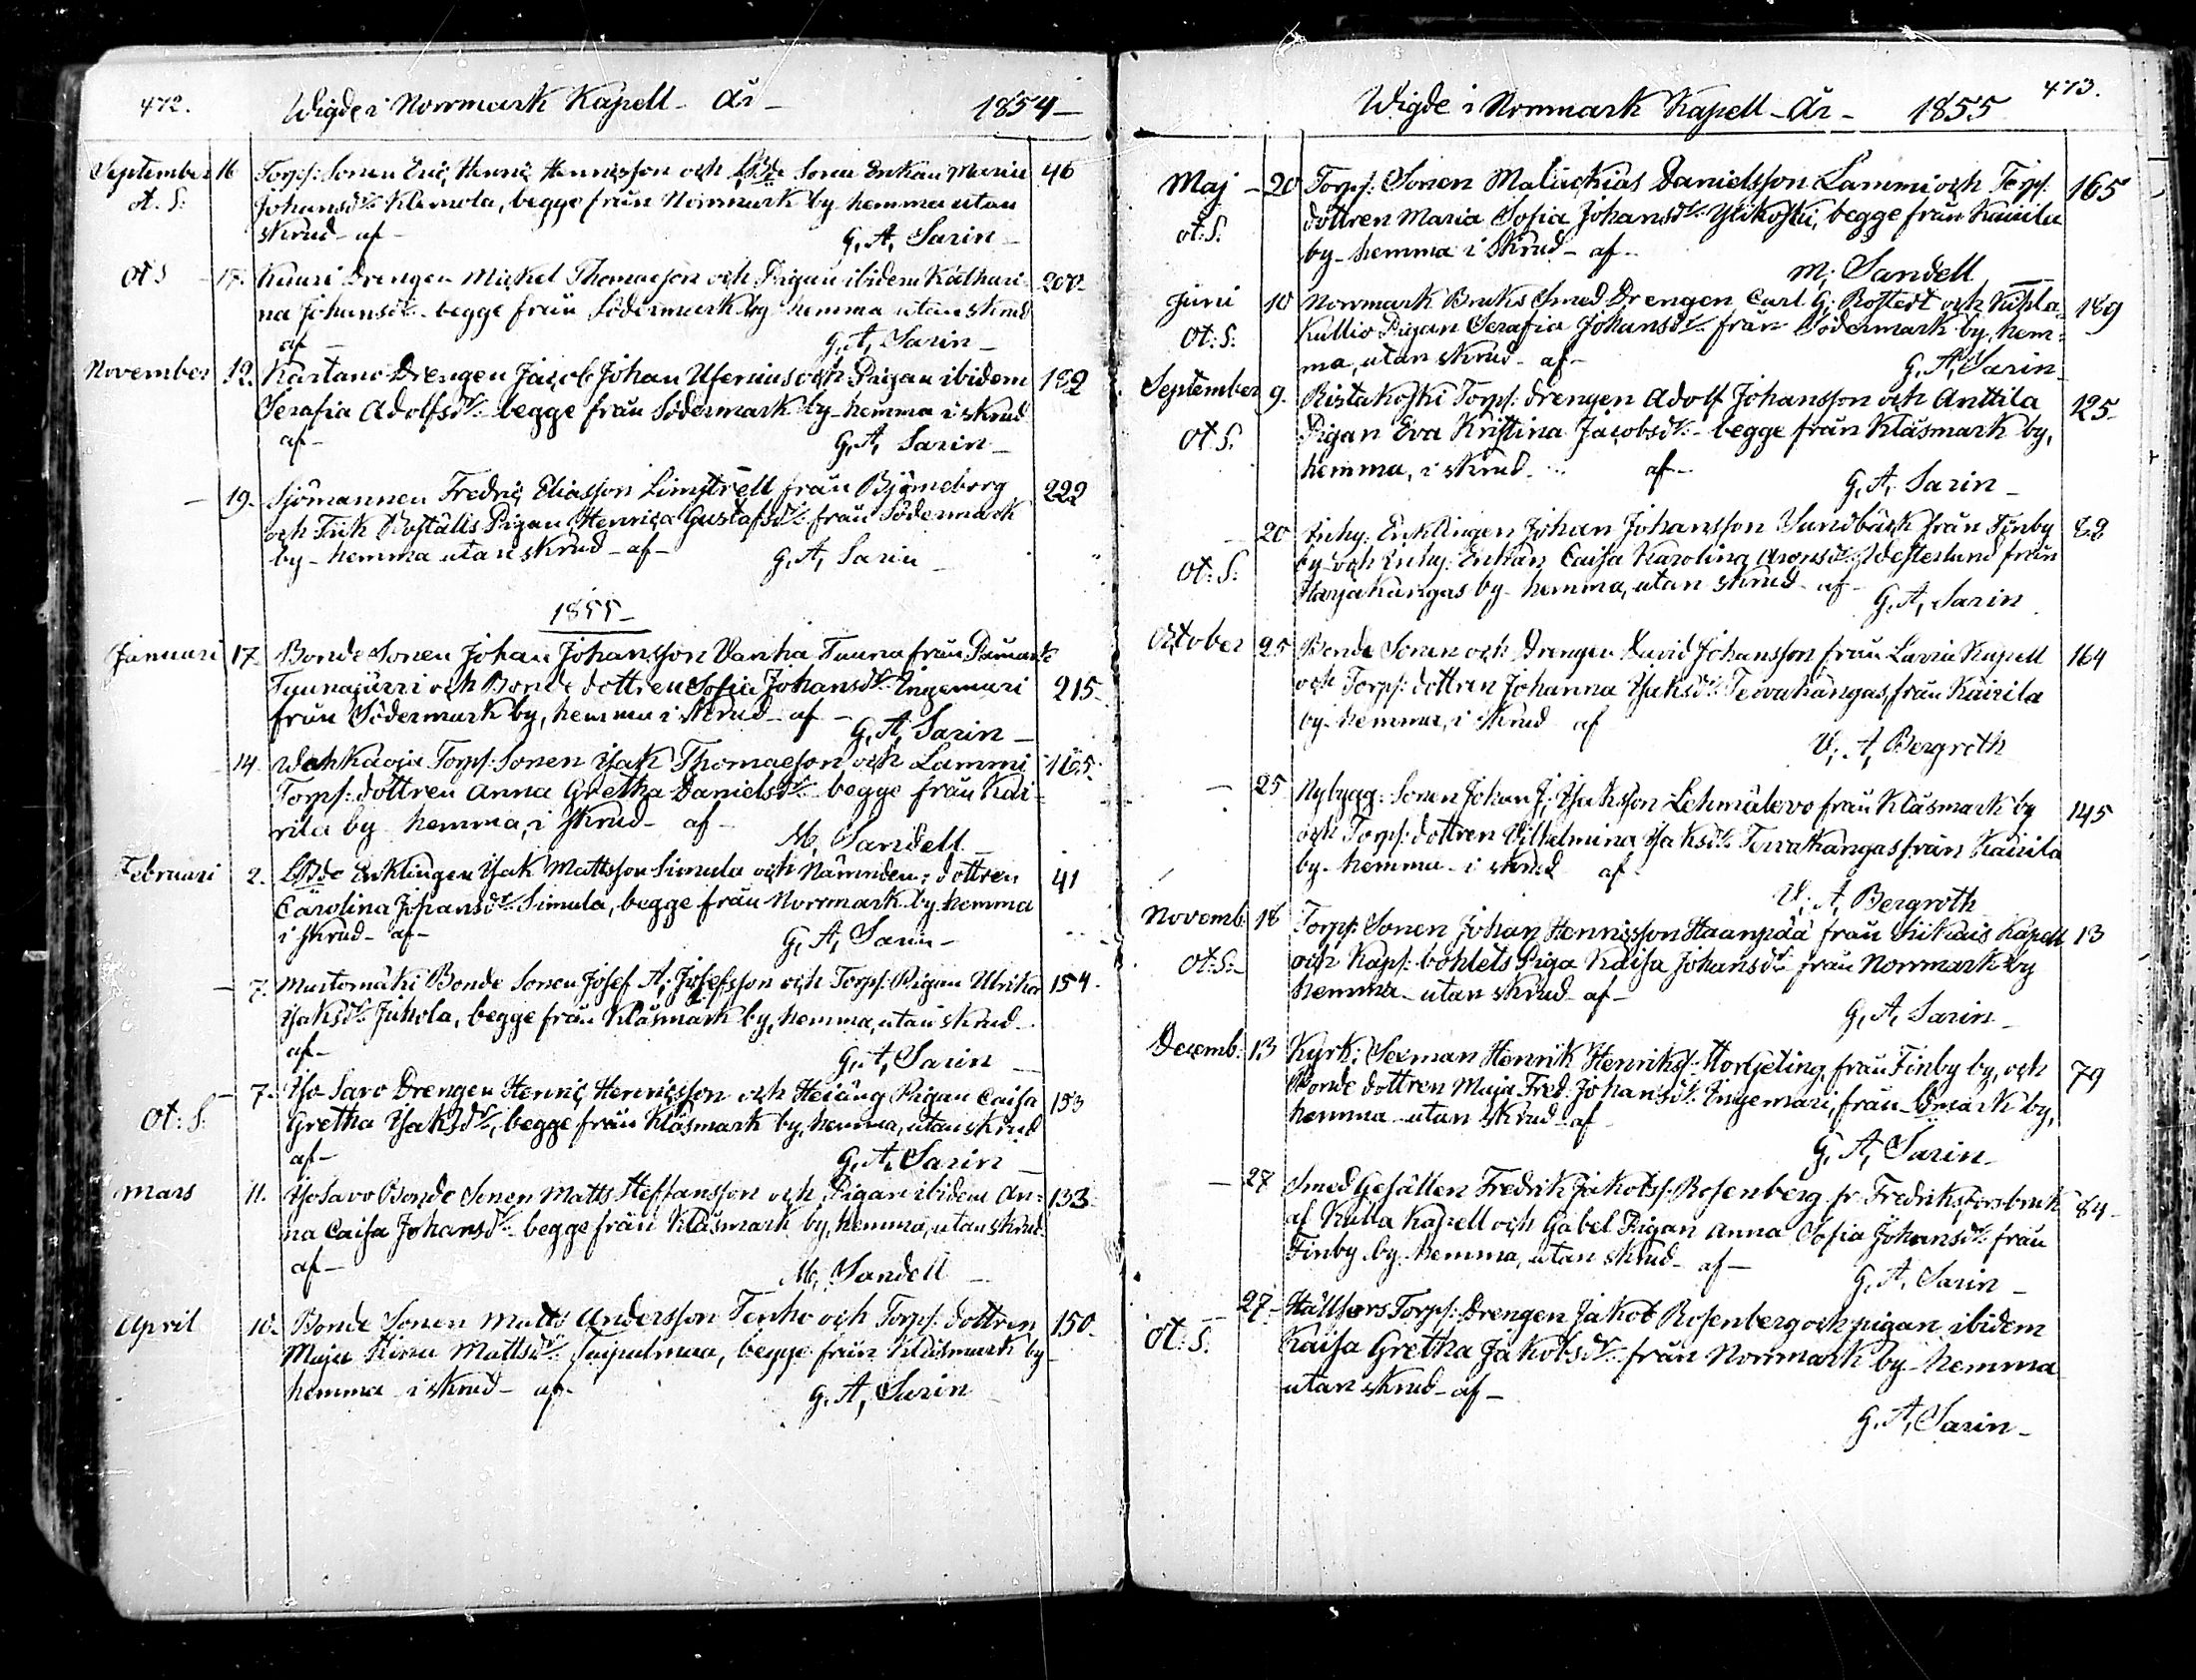 472. Wigde i Norrmark Kapell - År - 1854 -
September 16 Torp: Sonen Eric Henric Henricsson och Enkan Maria 46
Ot. S: Johansdr Klemola, begge från Norrmark by hemma utan
skrud - af - G. A. Sarin -
Ot S - 17. Knuri Drengen Mickel Thomasson och Pigan ibidem Kathari-
na Johansdr - begge från Södermark by hemma utan skrud
af - G. A. Sarin -
November 12. Kartano Drengen Jacob Johan Ufernius och Pigan ibidem 182
Serafia Adolfsdr - begge från Södermark by - hemma i skrud
af - G. A. Sarin -
- 19. Sjömannen Fredric Eliasson Limstrell från Björneborg 222
och Pigan Henrica Gustafsdr från Södermark
by - hemma utan skrud - af - G. A. Sarin -
1855 -
Januari 17. Bonde Sonen Johan Johansson Vanha Tuuna från
Tuunajärri och Bonde dottren Sofia Johansdr Ingemari 215 -
från Södermark by, hemma i skrud - af - G. A. Sarin -
14. Wahkaoja Torp: Sonen Isak Thomasson och Lammi 165
Torp: dottren Anna Gretha Danielsdr - begge från Kai-
rila by hemma, i skrud - af - M. Sandell -
Februari 2. Enklingen Isak Mattsson Simula och Nämnden: dottren 41
Carolina Johansdr Simula, begge från Norrmark by hemma
i skrud - af - G. A. Sarin -
- 7. Mustomäki Bonde Sonen Josef A. Josefsson och Torp: Pigan Ulrika 154 -
Isaksdr Juhola, begge från Kläsmark by, hemma, utan skrud -
af - G. A. Sarin -
- 7. Iso Savo Drengen Henric Henricsson och Heiäng Pigan Caisa 153
Ot: S: Gretha Isaksdr, begge från Kläsmark by, hemma, utan skrud
af - G. A. Sarin -
Mars 11. Iso Savo Bonde Sonen Matts Steffansson och Pigan ibidem An- 133 -
na Caisa Johansdr - begge från Kläsmark by, hemma, utan skrud -
af - M. Sandell -
April 10. Bonde Sonen Matts Andersson Tenho och Torp: dottren 150 -
Maja Stina Mattsdr begge från Kläsmark by -
hemma - i skrud - af - G. A. Sarin
Wigde i Norrmark Kapell - År - 1855 473.
Maj - 20 Torp: Sonen Malackias Danielsson Lammi och Torp: 165
Ot: S: dottren Maria Sofia Johansdr Ylikoski, begge från Kairila
by - hemma i skrud - af -
M. Sandell -
Juni 10 Norrmark Bruks Smed Drengen Carl G: Rostedt och 189
Ot: S: Kallio Pigan Serafia Johansdr från Södermark by, hem-
ma, utan skrud - af - G. A. Sarin -
September 9. Ristakoski Torp: drengen Adolf Johansson och Anttila 125 -
Ot: S: Pigan Eva Kristina Jacobsdr - begge från Kläsmark by,
hemma, i skrud - af -
G. A. Sarin -
- 20 Inhy: Enklingen Johan Johansson Sundbäck från Finby
Ot: S: by och Inhy: Enkan Caisa Karolina Aronsdr Westerlund från
Harjakangas by - hemma, utan skrud - af - G. A. Sarin
October 25 Bonde Sonen och Drengen David Johansson från Lavia Kapell 164
och Torp: dottren Johanna Isaksdr Tervakangas, från Kairila
by - hemma, i skrud af
V. A. Bergroth
- 25 Nybygg: Sonen Johan J: Isaksson Lehmälevo från Kläsmark by 145
och Torp: dottren Vilhelmina Isaksdr Tervakangas från Kairila
by - hemma - i skrud af
V. A. Bergroth
Novemb: 18 Torp: Sonen Johan Henricsson Haanpää från Siikais Kapell 13
Ot: S: - och Kapl: bohlets Piga Kaisa Johansdr från Norrmark by
hemma - utan skrud - af -
G. A. Sarin -
Decemb: 13 Kyrk: Sexman Henrik Henriks: Hortjeling, från Finby by, och 79
Bonde dottren Maja Fred: Johansdr Ingemari, från by,
hemma - utan skrud - af
G. A. Sarin -
- 27 Smed Gesällen Fredrik Jakobs: Rosenberg fr. Fredriksforsbruk 84 -
af Kulla Kapell och Gabel Pigan Anna Sofia Johansdr från
Finby by - hemma, utan skrud - af -
G. A. Sarin -
27 - Hällfors Torp: Drengen Jakob Rosenberg och pigan ibidem
Ot: S: Kaisa Gretha Jakobsdr - från Norrmark by - hemma
utan skrud - af -
G. A. Sarin -